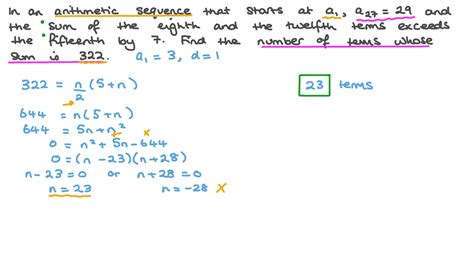 In an arithmetic sequence that starts at a₁, a₂₇ = 29 and
the sum of the eighth and the twelfth terms exceeds
the fifteenth by 7. Find the number of terms whose
sum is 322. a₁ = 3, d = 1
322 = n/2 (5 + n)
23 terms
644 = n(5 + n)
644 = 5n + n² x
0 = n² + 5n - 644
0 = (n - 23)(n + 28)
n - 23 = 0 or n + 28 = 0
n = 23 n = -28 x